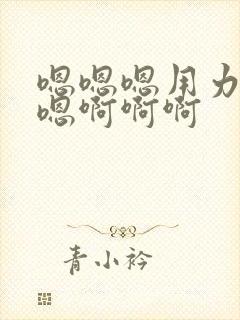 嗯嗯嗯用力
嗯啊啊啊
青小衿